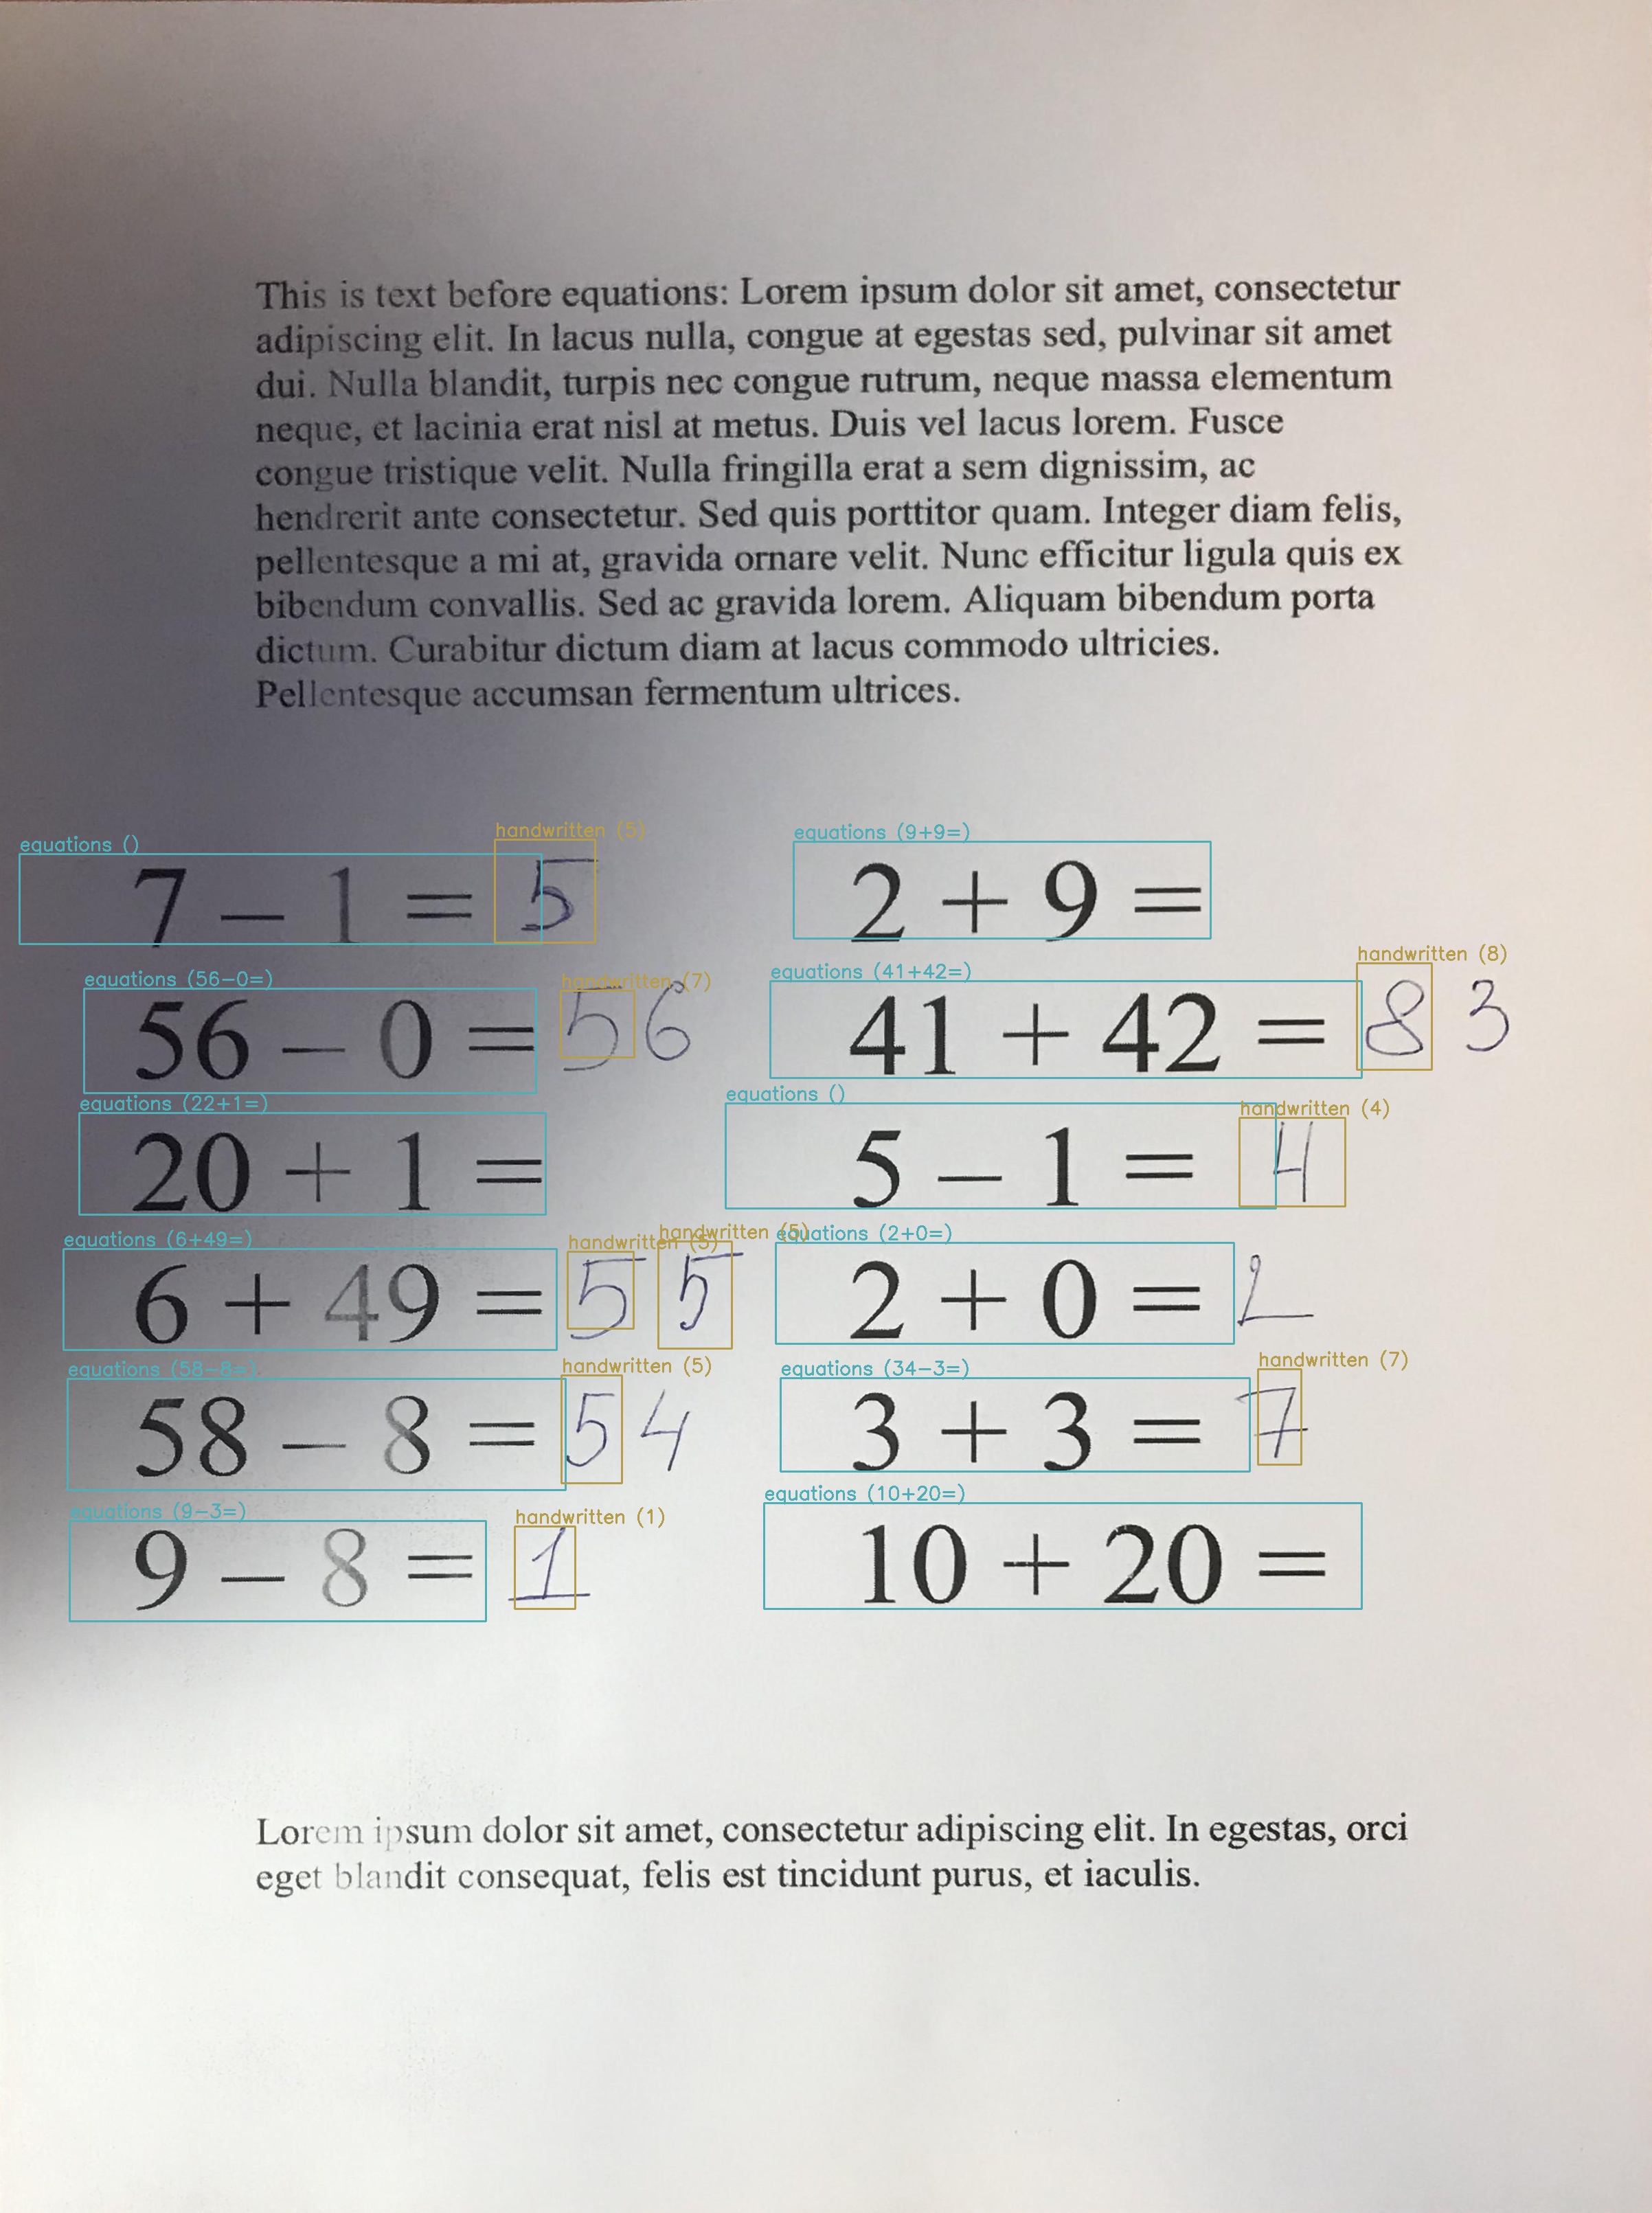 This is text before equations: Lorem ipsum dolor sit amet, consectetur
adipiscing elit. In lacus nulla, congue at egestas sed, pulvinar sit amet
dui. Nulla blandit, turpis nec congue rutrum, neque massa elementum
neque, et lacinia erat nisl at metus. Duis vel lacus lorem. Fusce
congue tristique velit. Nulla fringilla erat a sem dignissim, ac
hendrerit ante consectetur. Sed quis porttitor quam. Integer diam felis,
pellentesque a mi at, gravida ornare velit. Nunc efficitur ligula quis ex
bibendum convallis. Sed ac gravida lorem. Aliquam bibendum porta
dictum. Curabitur dictum diam at lacus commodo ultricies.
Pellentesque accumsan fermentum ultrices.
equations () handwritten (5) equations (9+9=)
7 – 1 = 5 2 + 9 =
equations (56-0=) handwritten (7) equations (41+42=) handwritten (8)
56 – 0 = 56 41 + 42 = 83
equations (22+1=) equations () handwritten (4)
20 + 1 = 5 – 1 = 4
equations (6+49=) handwritten (5) handwritten (5) equations (2+0=)
6 + 49 = 55 2 + 0 = 2
equations (58-8=) handwritten (5) equations (34-3=) handwritten (7)
58 – 8 = 54 3 + 3 = 7
equations (9-3=) handwritten (1) equations (10+20=)
9 – 8 = 1 10 + 20 =
Lorem ipsum dolor sit amet, consectetur adipiscing elit. In egestas, orci
eget blandit consequat, felis est tincidunt purus, et iaculis.